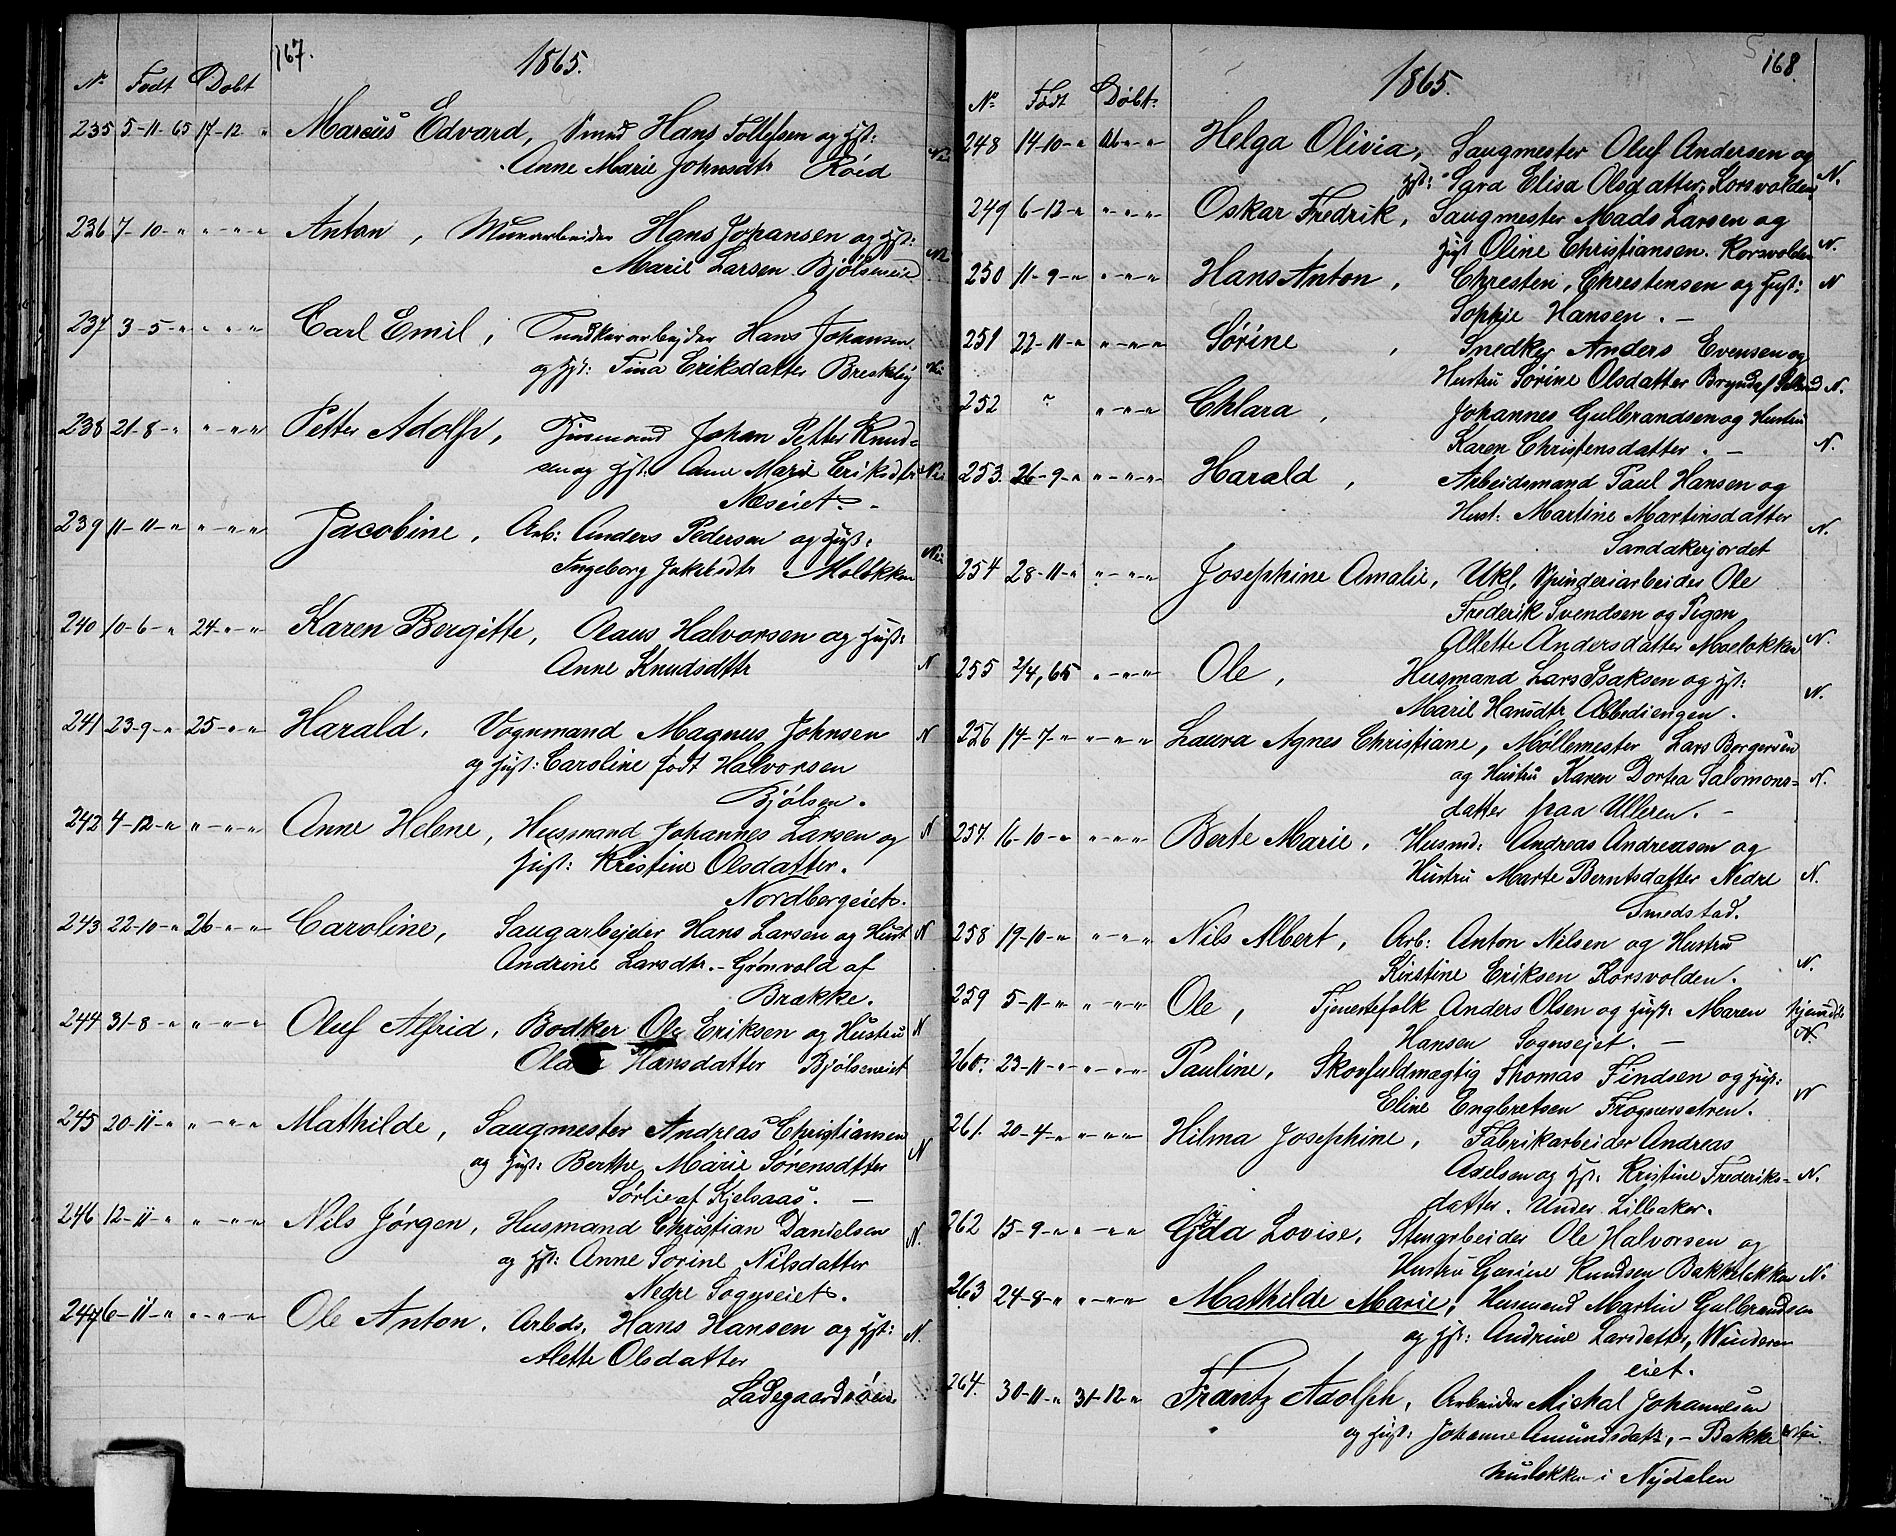 167.
1865.
No Født Døbt
235 5-11-65 17-12 " Marcus Edvard, Smed Hans Tollefsen og Hst:
Anne Marie Johnsdtr Røed
236 7-10-" "-"-" Anton, Murarbeider Hans Johansen og Hst: N
Marie Larsen Bjølseneie
237 3-5-" "-"-" Carl Emil, Hans Johansen
og Hst: Tina Eriksdatter Breskeby
238 21-8-" "-"-" Petter Adolf, Johan Petter Knud=
sen og Hst: Anne Marie Eriksdtr
Næseiet. -
239 11-11-" "-"-" Jacobine, Arb: Anders Pedersen og Hust:
Ingeborg Moløkken
240 10-6-" 24-"-" Karen Bergitte, Olaus Halvorsen og Hust:
Anne Knudsdttr N
241 23-9-" 25-"-" Harald, Vognmand Magnus Johnsen N
og Hust: Caroline født Halvorsen
Bjølsen.
242 4-12-" "-"-" Anne Helene, Husmand Johannes Larsen og N
Hust: Kristine Olsdatter.
Nordbergeiet.
243 22-10-" 26-"-" Caroline, Saugarbejder Hans Larsen og Hust N
Andrine Larsdtr. - Grønvold af
Brække.
244 31-8-" "-"-" Oluf Alfrid, Bødker Ole Eriksen og Hustru N
Hansdatter Bjølseneiet
245 20-11-" "-"-" Mathilde, Saugmester Andreas Christiansen
og Hust: Berthe Marie Sørensdtter N
Sørlie af Kjelsaas. -
246 12-11-" "-"-" Nils Jørgen, Husmand Christian Danielsen
og Hst: Anne Sorine Nilsdatter N.
Nedre Sogneeiet.
247 6-11-" "-"-" Ole Anton, Arbds. Hans Hansen og Hst: N.
Alette Olsdatter
Ladegaardsøen
168.
1865.
No Født Døbt.
248 14-10-" 26-"-" Helga Olivia, Saugmester Oluf Andersen og
Hst: Sara Elisa Olsdatter, Korsvolden N.
249 6-12-" "-"-" Oskar Fredrik, Saugmester Mads Larsen og
Hust Oline Christiansen. Korsvolden N.
250 11-9-" "-"-" Hans Anton, Christen Christensen og Hust: N
Sophie Hansen. -
251 22-11-" "-"-" Sørine, Snedker Anders Evensen og
Hustru Sørine Olsdatter Bryndaf N.
252 " "-"-" Chlara, Johannes Gulbrandsen og Hustru
Karen Christensdatter. - N.
253. 26-9-" "-"-" Harald, Arbeidsmand Paul Hansen og
Hust: Martine Martinsdatter
Sandakerjordet N.
254 28-11-" "-"-" Josephine Amalie, Ukl, Spinderiarbeider Ole
Frederik Svendsen og Pigen
Allette Andersdatter Moeløkken N.
255 2/4, 65 "-"-" Ole, Husmand Lars Isaksen og Hst:
Marie Hansdtr Abbediengen. N.
256 14-7-" "-"-" Laura Agnes Christiane, Møllemester Lars Borgersen
og Hustru Karen Dortea Salomons= N.
datter paa Ulleren. -
257. 16-10-" "-"-" Berte Marie, Husmd: Andreas Andreasen og
Hustru Marte Berntsdatter Nedre N.
Smedstad.
258 19-10-" "-"-" Nils Albert, Arb: Anton Nilsen og Hustru
Kirstine Eriksen Korsvolden. N.
259 5-11-" "-"-" Ole, Tjenestefolk Anders Olsen og Hust: Maren
Hansen Sognseiet. - N.
260. 23-11-" "-"-" Pauline, Skovfuldmægtig Thomas Findsen og Hust:
Eline Engbretsen Frognersætren. N
261. 20-4-" "-"-" Hilma Josephine, Fabrikarbeider Andreas
Axelsen og Hst: Kristine Frederiks- N.
datter. Under Lilleaker.
262 15-9-" "-"-" Gda Lovise, Stenarbeider Ole Halvorsen og
Hustru Gusine Knudsen Bakkeløkken N.
263 24-8-" "-"-" Mathilde Marie, Husmand Martin Gulbrandsen
og Hst: Andrine Larsdatter, Winderen
eiet.
264. 30-11-" 31-12-" Frantz Adolph, Arbeider Mickal Johannesen
og Hust: Johanne Amundsdatr, - Bakke
husløkken i Nydalen